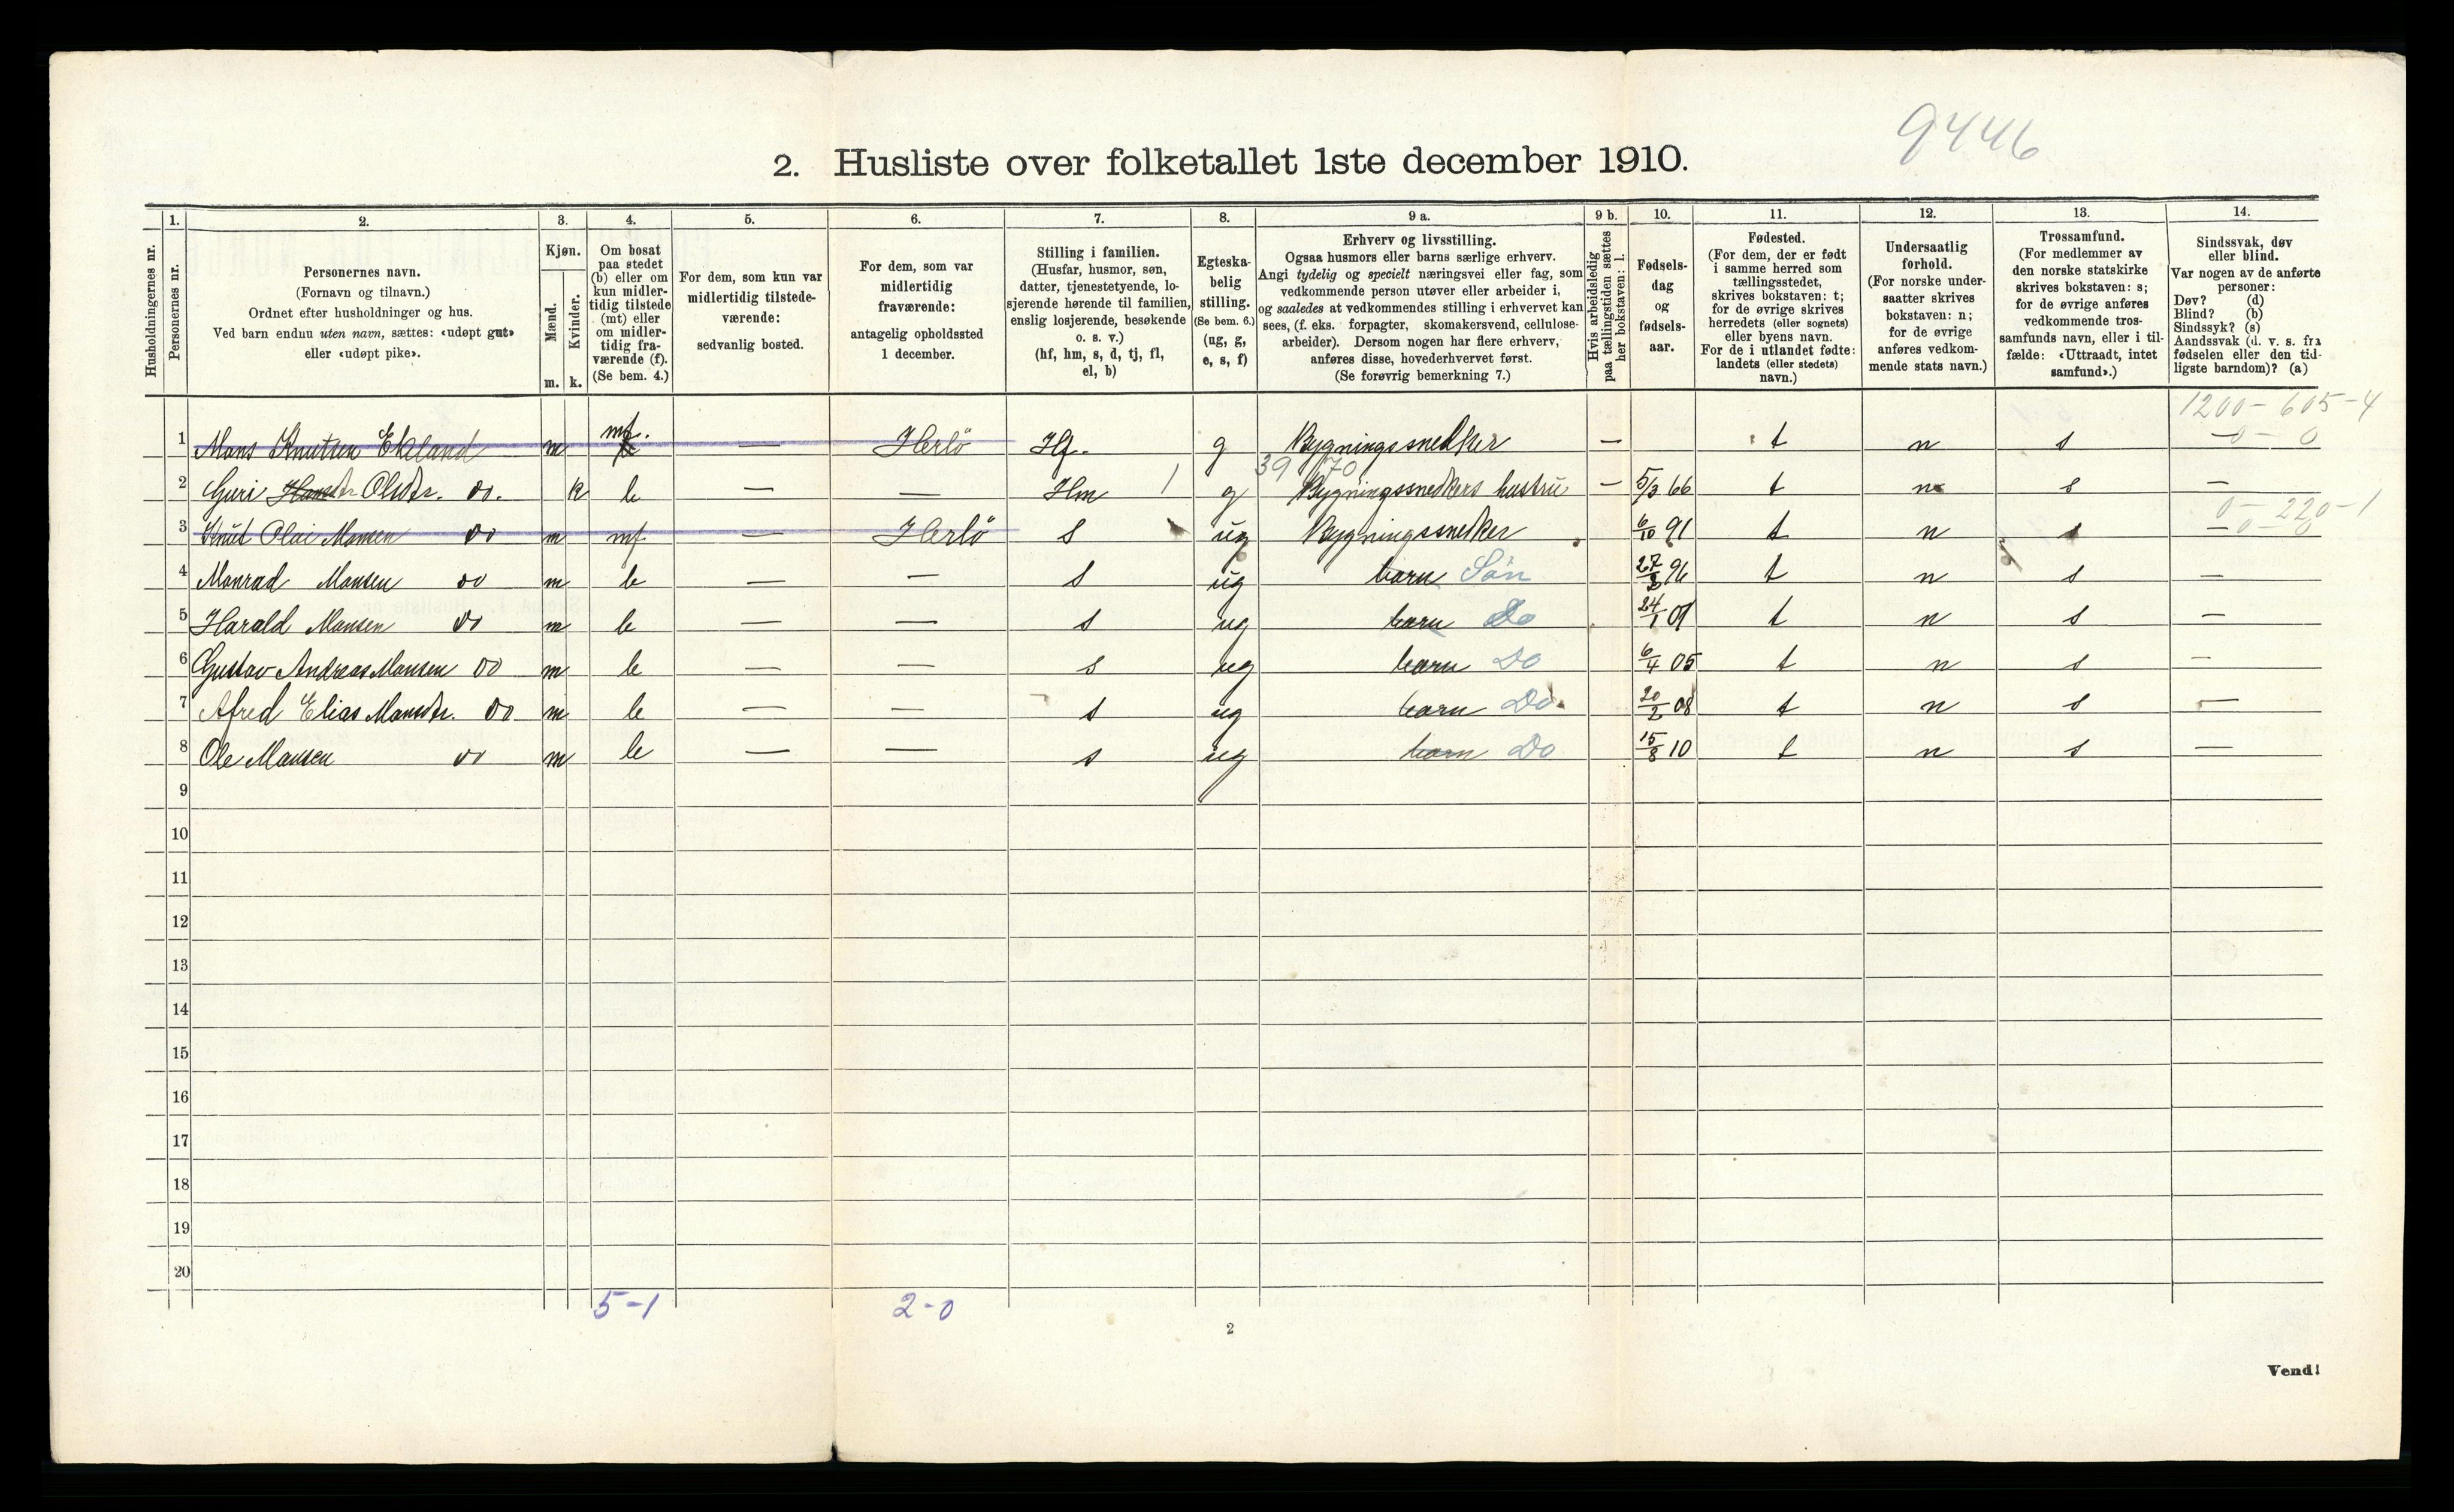 9446
2. Husliste over folketallet 1ste december 1910.
Husholdningernes nr.
1. Personernes nr.
2. Personernes navn.
(Fornavn og tilnavn.)
Ordnet efter husholdninger og hus.
Ved barn endnu uten navn, sættes: «udøpt gut»
eller «udøpt pike».
3. Kjøn.
Mænd. m.
Kvinder. k.
4. Om bosat
paa stedet
(b) eller om
kun midler-
tidig tilstede
(mt) eller
om midler-
tidig fra-
værende (f).
(Se bem. 4.)
5. For dem, som kun var
midlertidig tilstede-
værende:
sedvanlig bosted.
6. For dem, som var
midlertidig
fraværende:
antagelig opholdssted
1 december.
7. Stilling i familien.
(Husfar, husmor, søn,
datter, tjenestetyende, lo-
sjerende hørende til familien,
enslig losjerende, besøkende
o. s. v.)
(hf, hm, s, d, tj, fl,
el, b)
8. Egteska-
belig
stilling.
(Se bem. 6.)
(ug, g,
e, s, f)
9 a. Erhverv og livsstilling.
Ogsaa husmors eller barns særlige erhverv.
Angi tydelig og specielt næringsvei eller fag, som
vedkommende person utøver eller arbeider i,
og saaledes at vedkommendes stilling i erhvervet kan
sees, (f. eks. forpagter, skomakersvend, cellulose-
arbeider). Dersom nogen har flere erhverv,
anføres disse, hovederhvervet først.
(Se forøvrig bemerkning 7.)
9 b. Hvis arbeidsledig
paa tællingstiden sættes
her bokstaven: l.
10. Fødsels-
dag
og
fødsels-
aar.
11. Fødested.
(For dem, der er født
i samme herred som
tællingsstedet,
skrives bokstaven: t;
for de øvrige skrives
herredets (eller sognets)
eller byens navn.
For de i utlandet fødte:
landets (eller stedets)
navn.)
12. Undersaatlig
forhold.
(For norske under-
saatter skrives
bokstaven: n;
for de øvrige
anføres vedkom-
mende stats navn.)
13. Trossamfund.
(For medlemmer av
den norske statskirke
skrives bokstaven: s;
for de øvrige anføres
vedkommende tros-
samfunds navn, eller i til-
fælde: «Uttraadt, intet
samfund».)
14. Sindssvak, døv
eller blind.
Var nogen av de anførte
personer:
Døv? (d)
Blind? (b)
Sindssyk? (s)
Aandssvak (d. v. s. fra
fødselen eller den tid-
ligste barndom)? (a)
1200 - 605 - 4
1 Mons Knutsen Ekeland m mf. — Herlö Hf. g Bygningssnedker — t n s — 0 - 0
39 70
2 Guri Olsdtr. do. k b — — Hm 1 g Bygningssnedkers hustru — 5/3 66 t n s —
0 - 220 - 1
3 Knut Olai Monsen do m mf — Herlö s ug Bygningssnedker 6/10 91 t n s — 0 - 0
4 Monrad Monsen do m b — — s ug barn Sön 27/3 96 t n s —
5 Harald Monsen do m b — — s ug barn Do 24/1 01 t n s —
6 Gustav Andreas Monsen do m b — — s ug barn Do 6/4 05 t n s —
7 Afred Elias Monsdtr. do m b — — s ug barn Do. 20/2 08 t n s —
8 Ole Monsen do m b — — s ug barn Do 15/8 10 t n s —
9
10
11
12
13
14
15
16
17
18
19
20
5-1 2-0
2
Vend!